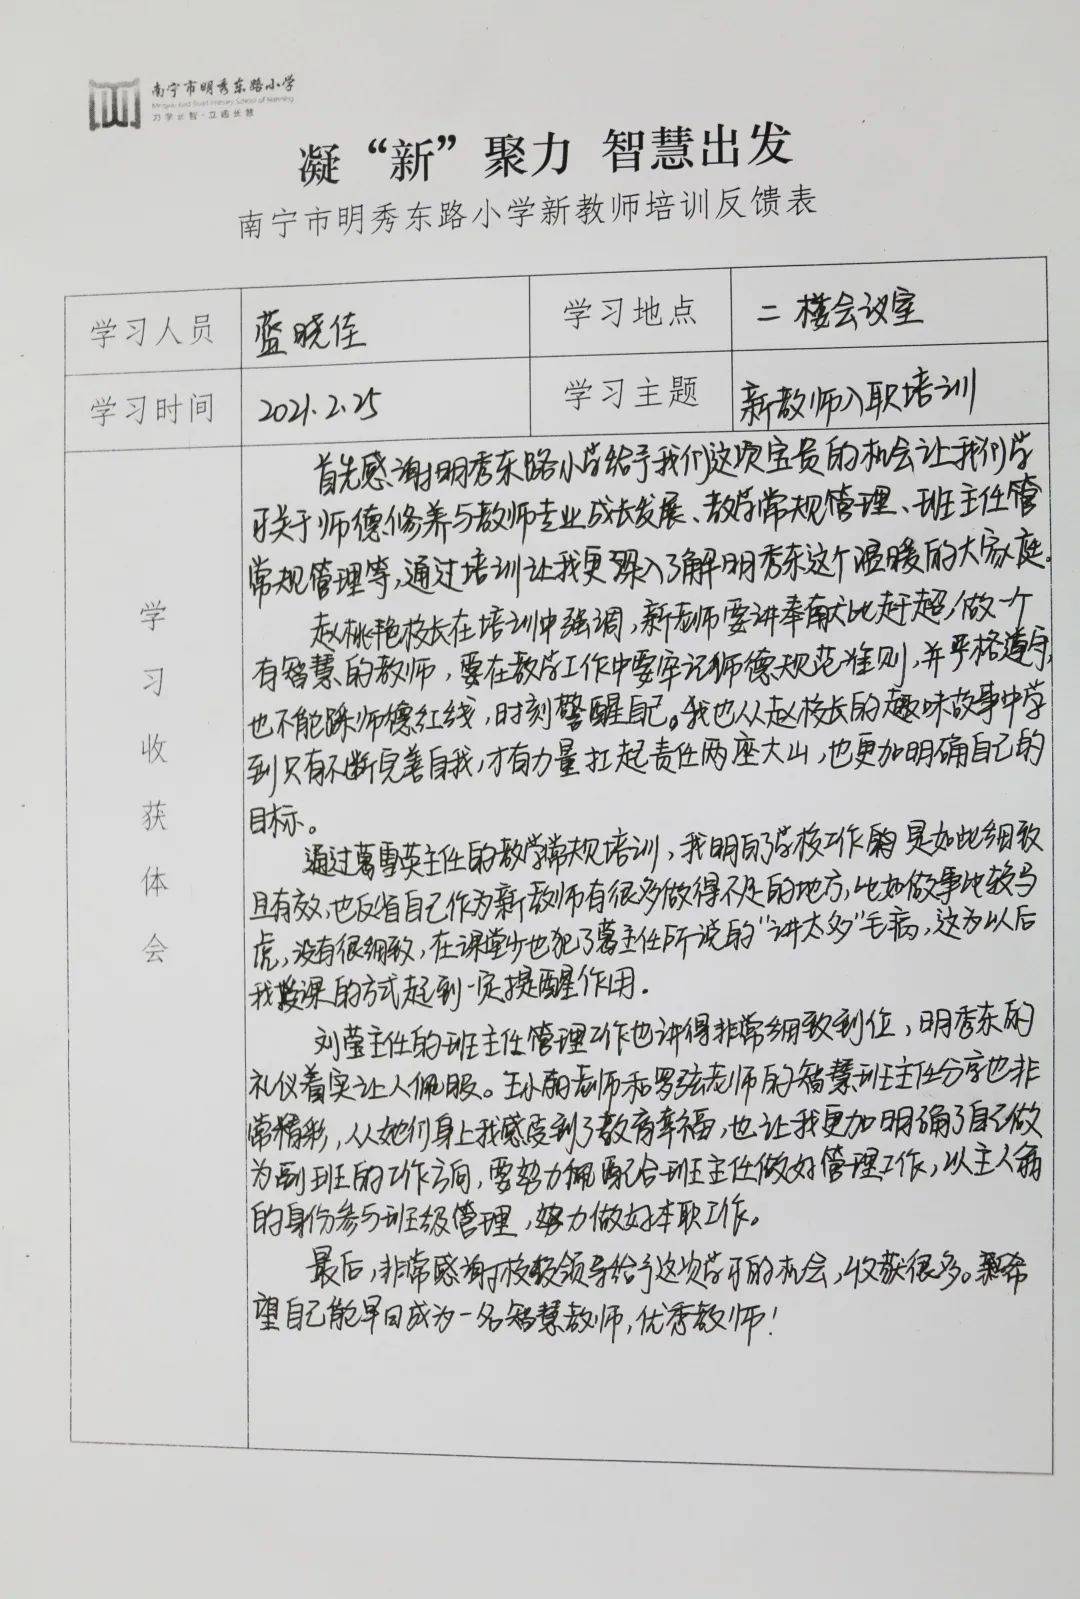 南宁市明秀东路小学
Mingxiu East Road Primary School of Nanning
力学长智·立德长慧
凝“新”聚力 智慧出发
南宁市明秀东路小学新教师培训反馈表
学习人员 蓝晓佳 学习地点 二楼会议室
学习时间 2021.2.25 学习主题 新教师入职培训
学习收获体会
首先感谢明秀东路小学给予我们这次宝贵的机会让我们学
习关于师德修养与教师专业成长发展、教学常规管理、班主任管
常规管理等,通过培训让我更深入了解明秀东这个温暖的大家庭。
赵桃艳校长在培训中强调,新老师要讲奉献比赶超,做一个
有智慧的教师,要在教学工作中要牢记师德规范准则,并严格遵守,
也不能踩师德红线,时刻警醒自己。我也从赵校长的趣味故事中学
到只有不断完善自我,才有力量扛起责任两座大山,也更加明确自己的
目标。
通过葛雪英主任的教学常规培训,我明白了学校工作的是如此细致
且有效,也反省自己作为新教师有很多做得不足的地方,比如做事比较马
虎,没有很细致,在课堂上也犯了葛主任所说的“讲太多”毛病,这为以后
我授课的方式起到一定提醒作用。
刘莹主任的班主任管理工作也讲得非常细致到位,明秀东的
礼仪着实让人佩服。王小丽老师和罗弦老师的智慧班主任分享也非
常精彩,从她们身上我感受到了教育幸福,也让我更加明确了自己做
为副班的工作方向,要努力配合班主任做好管理工作,以主人翁
的身份参与班级管理,努力做好本职工作。
最后,非常感谢校级领导给予这次学习的机会,收获很多。希
望自己能早日成为一名智慧教师,优秀教师!